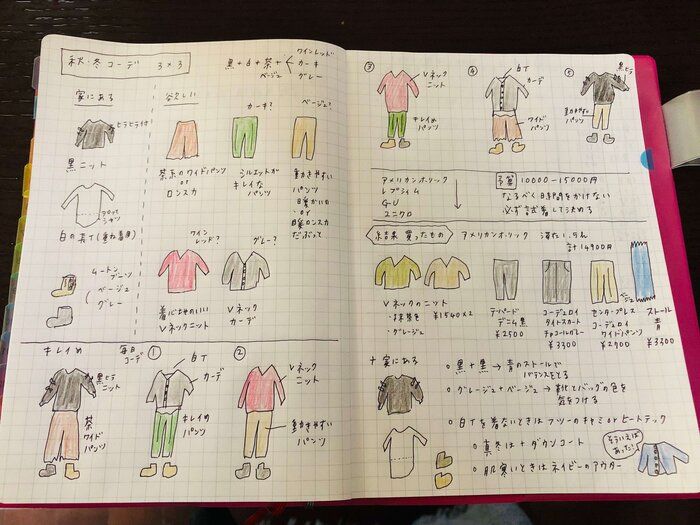 秋・冬コーデ 3×3
黒+白+茶+
ベージュ
ワインレッド
カーキ
グレー
家にある
ヒラヒラ付
黒ニット
白の長T(重ね着用)
ムートン
ブーツ
ベージュ
グレー
欲しい
茶系のワイドパンツ
or
ロンスカ
カーキ?
シルエットが
キレイな
パンツ
ベージュ?
動きやすい
パンツ
暖かいの
or
暖ロンスカ
だぶって
ワイン
レッド?
着心地のいい
Vネックニット
グレー?
Vネック
カーデ
キレイめ
毎日
コーデ
黒ヒラ
ニット
茶
ワイド
パンツ
①
白T
カーデ
キレイめ
パンツ
②
Vネック
ニット
動きやすい
パンツ
③
Vネック
ニット
キレイめ
パンツ
④
白T
カーデ
ワイド
パンツ
⑤
黒ヒラ
動きやすい
パンツ
アメリカンホリック
レプシィム
GU
ユニクロ
予算 10000-15000円
なるべく日時間をかけない
必ず試着して決める
結果 買ったもの
アメリカンホリック
計14900円
Vネックのニット
・抹茶
・グレージュ
¥1540×2
テーパード
デニム黒
¥2500
コーデュロイ
タイトスカート
チャコールグレー
¥3300
ベージュ
センタープレス
コーデュロイ
ワイドパンツ
¥2900
ストール
青
¥3300
+家にある
○ 黒+黒→青のストールで
バランスをとる
○ グレージュ+ベージュ→靴とバッグの色
を気をつける
○ 白Tを着ないときはフツーのキャミorヒートテック
○ 真冬は+ダウンコート
○ 肌寒いときはネイビーのアウター
そういえば
あった!